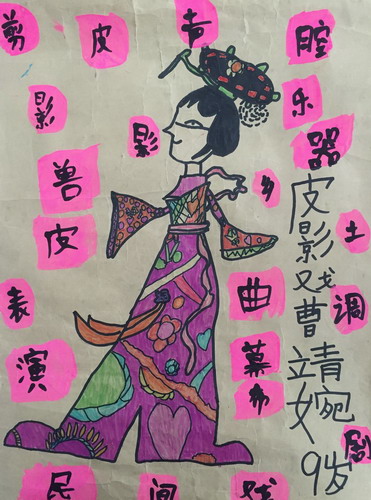 剪 皮 青 腔
影 影 乐
兽 器
皮 乡 土
表 曲 调
演 幕 布 剧
民 间 戏
皮影戏曹靖婉 9岁